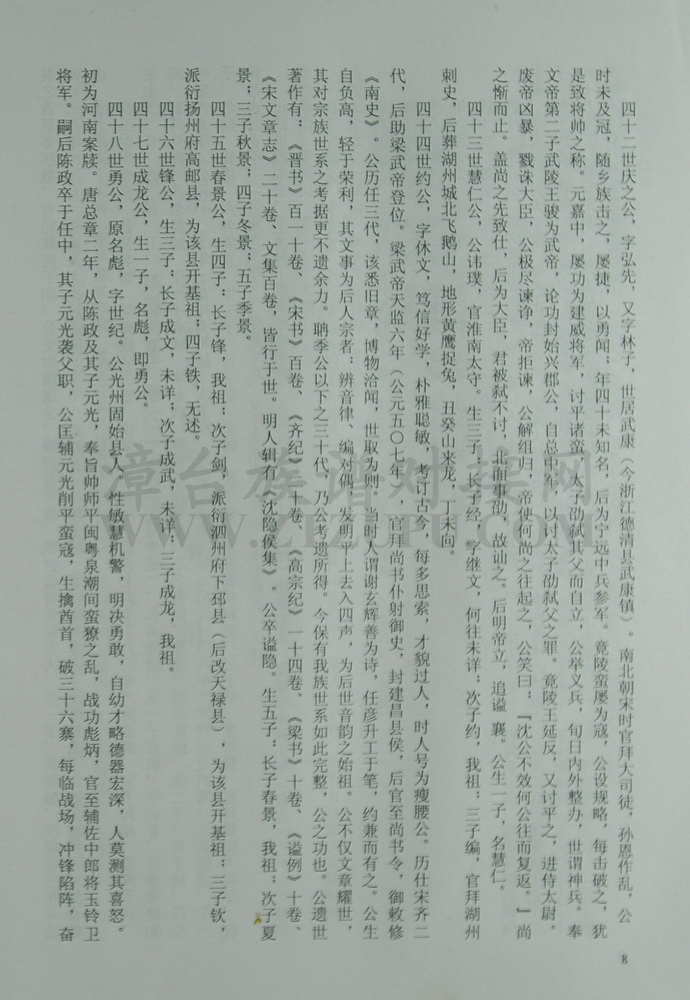 四十二世庆之公，字弘先，又字林子，世居武康（今浙江德清县武康镇）。南北朝宋时官拜大司徒，孙恩作乱，公
时未及冠，随乡族击之，屡捷，以勇闻；年四十未知名，后为宁远中兵参军。竟陵蛮屡为寇，公设规略，每击破之，犹
是致将帅之称。元嘉中，屡功为建威将军，讨平诸蛮。太子劭弑其父而自立，公举义兵，旬日内外整办，世谓神兵。奉
文帝第二子武陵王骏为武帝，论功封始兴郡公，自总中军，以讨太子劭弑父之罪。竟陵王延反，又讨平之，进侍太尉。
废帝凶暴，戮诛大臣，公极尽谏诤，帝拒谏，公解组归，帝使何尚之往起之，公笑曰：『沈公不效何公往而复返。』尚
之惭而止。盖尚之先致仕，后为大臣，君被弑不讨，北而事劭，故讪之。后明帝立，追谥襄。公生一子，名慧仁。
四十三世慧仁公，公讳璞，官淮南太守。生三子；长子经，字继文，何往未详；次子约，我祖；三子编，官拜湖州
刺史，后葬湖州城北飞鹅山，地形黄鹰捉兔，丑癸山来龙，丁未向。
四十四世约公，字休文，笃信好学，朴雅聪敏，考订古今，每多思索，才貌过人，时人号为瘦腰公。历仕宋齐二
代，后助梁武帝登位。梁武帝天监六年（公元五〇七年），官拜尚书仆射御史，封建昌县侯，后官至尚书令，御敕修
《南史》。公历任三代，该悉旧章，博物洽闻，世取为则，当时人谓谢玄辉善为诗，任彦升工于笔，约兼而有之。公生
自负高，轻于荣利，其文事为后人宗者；辨音律、编对偶，发明平上去入四声，为后世音韵之始祖。公不仅文章耀世，
其对宗族世系之考据更不遗余力。聃季公以下之三十代，乃公考遗所得。今保有我族世系如此完整，公之功也。公遗世
著作有：《晋书》百一十卷、《宋书》百卷、《齐纪》二十卷、《高宗纪》一十四卷、《梁书》十卷、《谥例》十卷、
《宋文章志》二十卷、文集百卷，皆行于世。明人辑有《沈隐侯集》。公卒谥隐。生五子；长子春景，我祖；次子夏
景；三子秋景；四子冬景；五子季景。
四十五世春景公，生四子；长子锋，我祖；次子剑，派衍泗州府下邳县（后改天禄县），为该县开基祖；三子钦，
派衍扬州府高邮县，为该县开基祖；四子铁，无述。
四十六世锋公，生三子；长子成文，未详；次子成武，未详；三子成龙，我祖。
四十七世成龙公，生一子，名彪，即勇公。
四十八世勇公，原名彪，字世纪。公光州固始县人，性敏慧机警，明决勇敢，自幼才略德器宏深，人莫测其喜怒。
初为河南案牍。唐总章二年，从陈政及其子元光，奉旨帅师平闽粤泉潮间蛮獠之乱，战功彪炳，官至辅佐中郎将玉铃卫
将军。嗣后陈政卒于任中，其子元光袭父职，公匡辅元光削平蛮寇，生擒酋首，破三十六寨，每临战场，冲锋陷阵，奋
8
漳台族谱对接网
WWW.ZTZUPU.COM